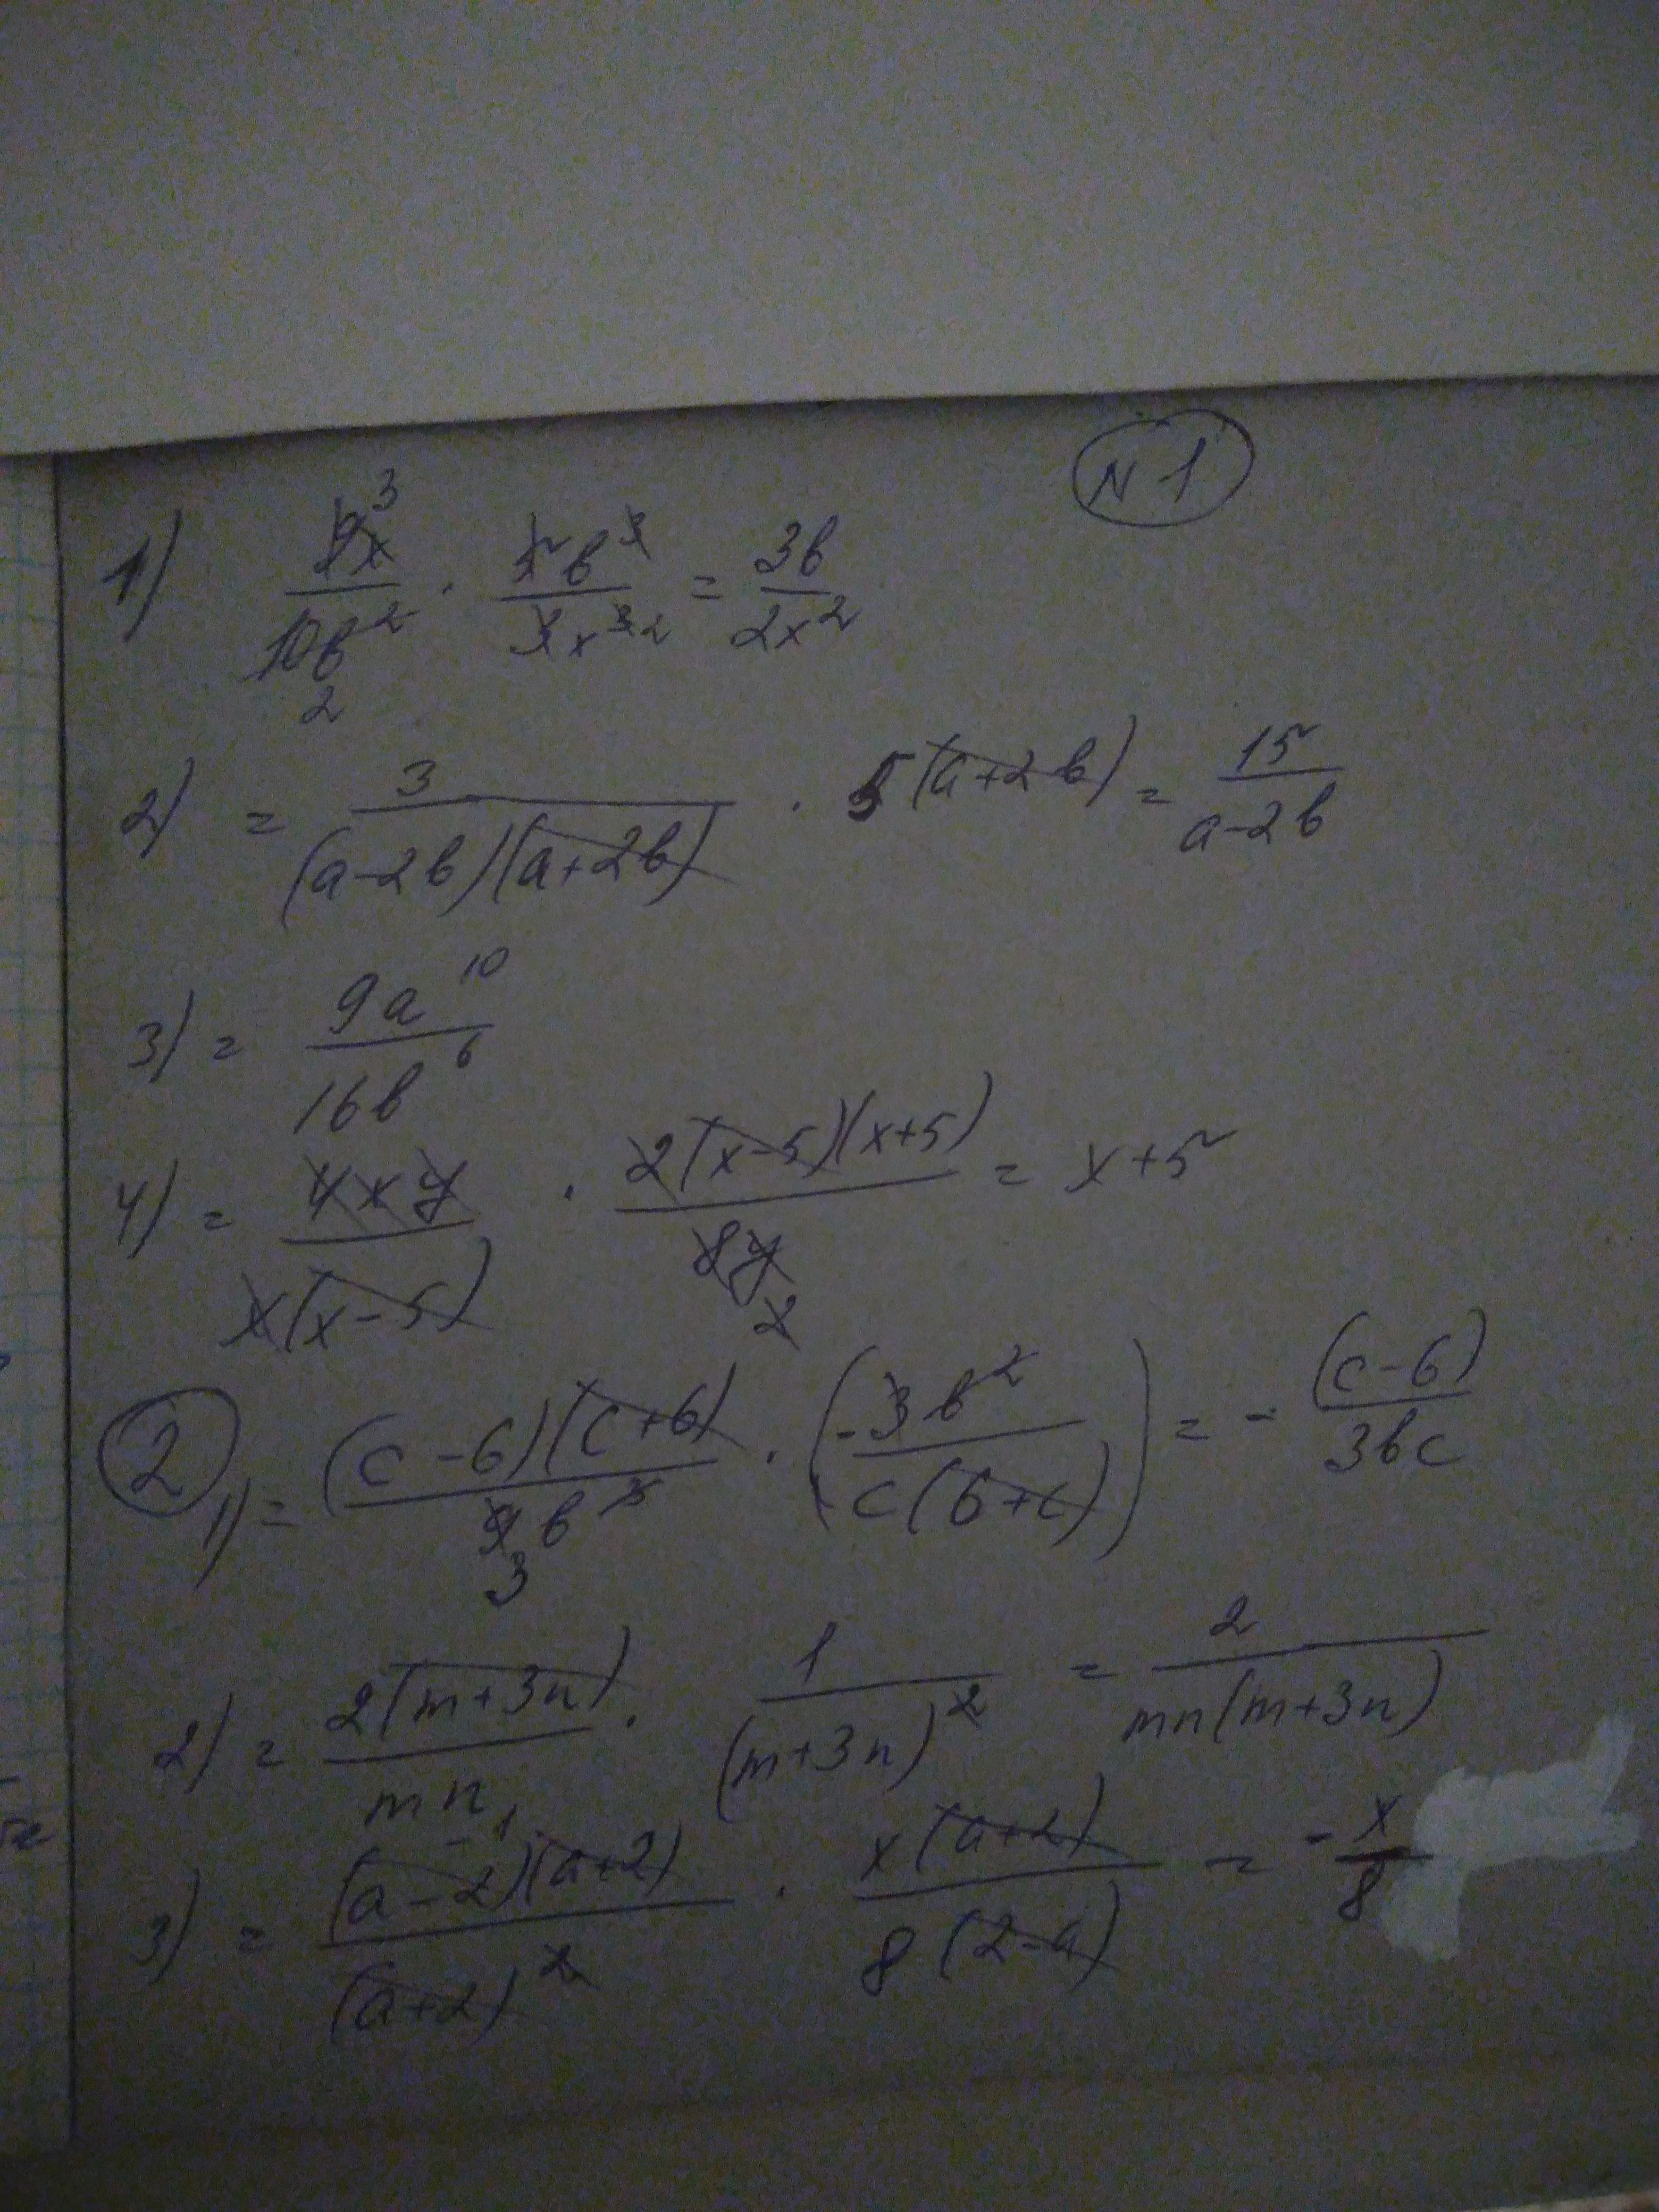 N 1
1) 9x³/10b² · 5b³/3x³ ² = 3b/2x²
2
2) = 3/((a-2b)(a+2b)) · 5(a+2b) = 15/(a-2b)
3) = 9a¹⁰/16b⁶
4) = 4xy/(x(x-5)) · 2(x-5)(x+5)/8y = x+5
2
2 1) = (c-6)(c+6)/9b³ · (-3b²/(c(6+c))) = - (c-6)/3bc
3
2) = 2(m+3n)/mn · 1/(m+3n)² = 2/(mn(m+3n))
-1
3) = (a-2)(a+2)/(a+2)² · x(a+2)/(8(2-a)) = - x/8